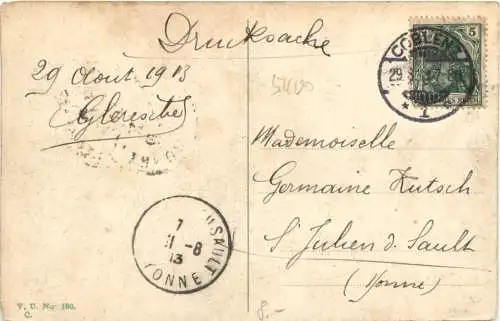 Drucksache
29 Août 1913
5400
COBLENZ
29.
* 1
5
Mademoiselle
Germaine Kutsch
St Julien d. Sault
(Yonne)
SAULT
7
11-8
13
YONNE
V. U. No. 180.
C.
8.-